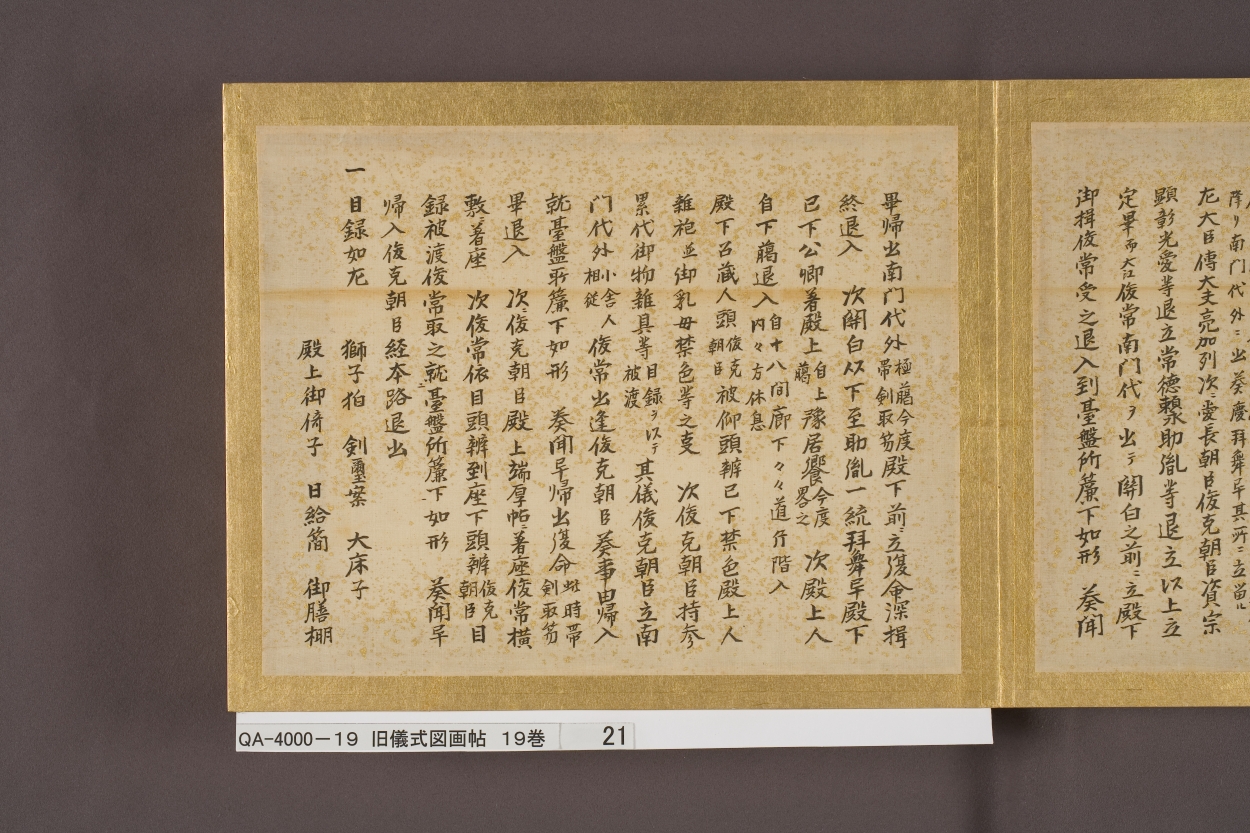 降リ南门代外ニ出奏慶拜舞早其所ニ立留ル
尨大臣傳大夫亮加列次ニ愛長朝臣俊克朝臣資宗
顕彰光愛等退立常德聡助胤等退立以上立
定畢而大江俊常南门代ヲ出テ関白之前ニ立殿下
御揖俊常受之退入到臺盤所簾下如形　奏聞
畢帰出南门代外極﨟今度帯剣取笏殿下前ニ立復命深揖
終退入　次関白以下至助胤一統拜舞早殿下
已下公卿著殿上自上﨟豫居饗今度畧之　次殿上人
自下﨟退入自十八間廊下々々道行階入内々方休息
殿下召蔵人頭俊克朝臣被仰頭辨已下禁色殿上人
雑袍並御乳母禁色等之支　次俊克朝臣持参
累代御物雑具等目録ヲ以テ被渡其儀俊克朝臣立南
门代外小舎人相従俊常出逢俊克朝臣奏事由帰入
就臺盤所簾下如形　奏聞早帰出復命此時帯剣取笏
畢退入　次ニ俊克朝臣殿上端厚帖ニ著座俊常横
敷ニ著座　次俊常依目頭辨到座下頭辨俊克朝臣目
録被渡俊常取之就臺盤所簾下如形　奏聞早
帰入俊克朝臣経本路退出
一目録如尨
獅子狛　剣璽案　大床子
殿上御倚子　日給簡　御膳棚
QA-4000-19　旧儀式図画帖　19巻　21